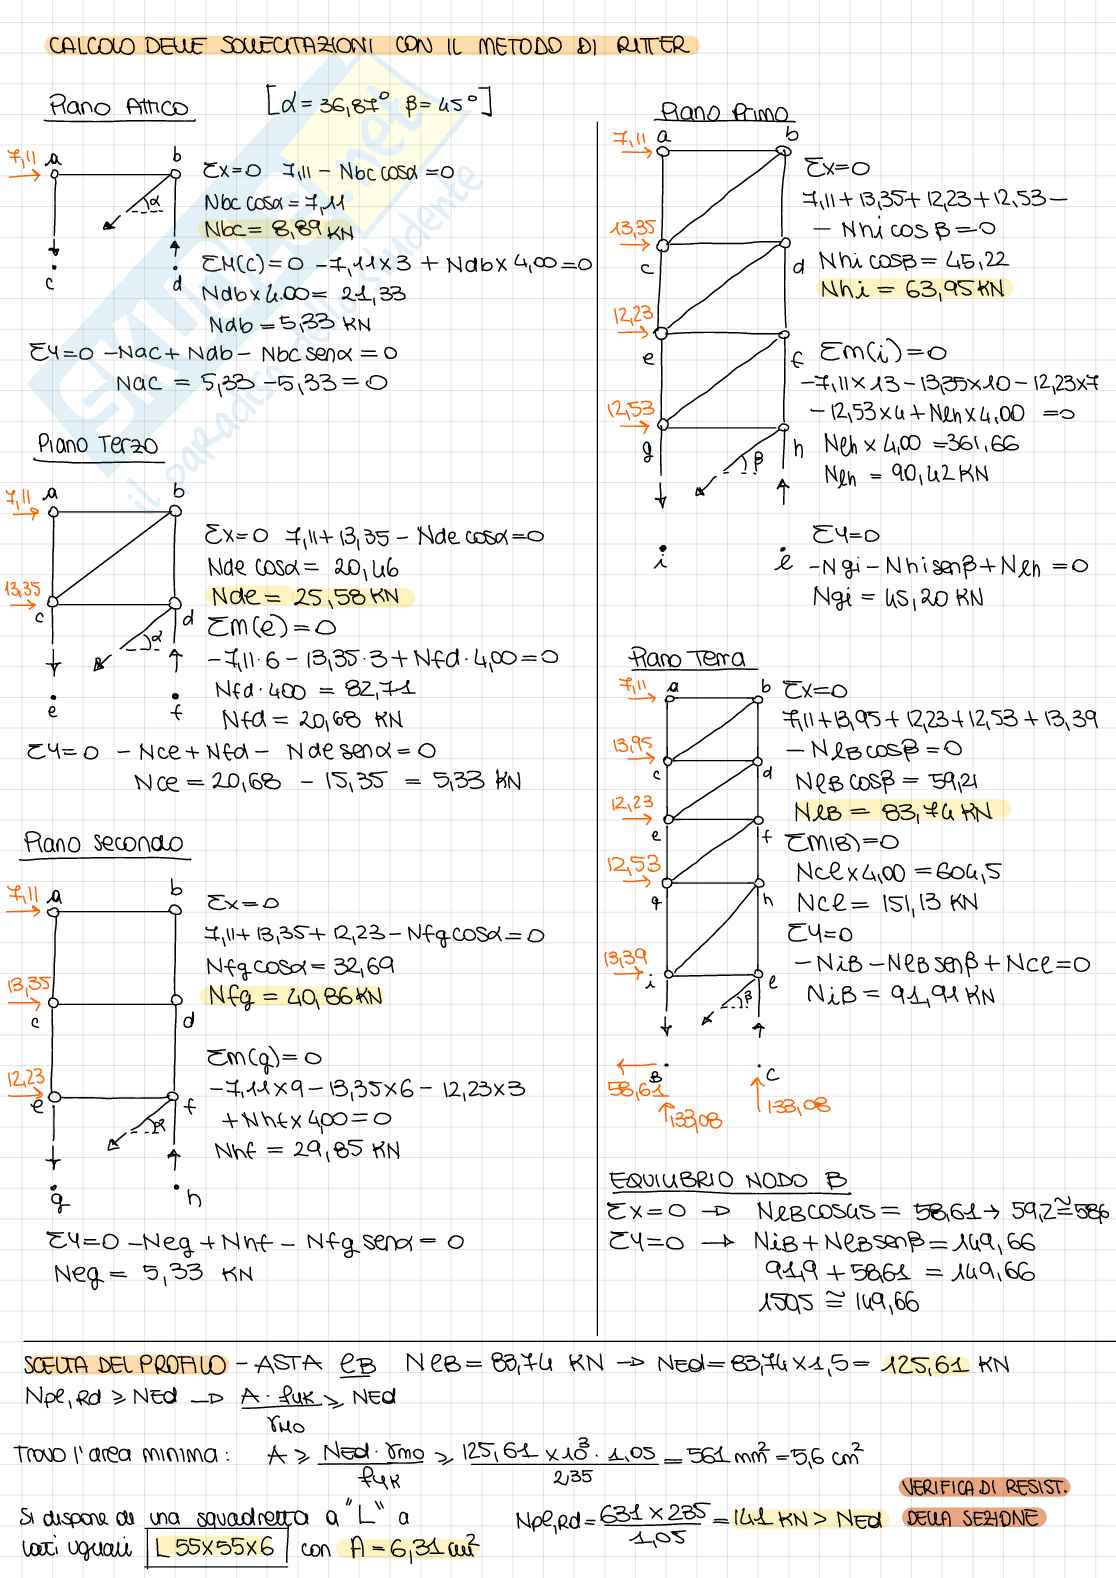 CALCOLO DELLE SOLLECITAZIONI CON IL METODO DI RITTER
Piano Attico
[α = 36,87° β = 45°]
7,11
a
b
α
c
d
Σx=0 7,11 - Nbc cosα = 0
Nbc cosα = 7,11
Nbc = 8,89 KN
ΣM(c) = 0 -7,11x3 + Ndb x 4,00 = 0
Ndb x 4.00 = 21,33
Ndb = 5,33 KN
Σy=0 -Nac + Ndb - Nbc senα = 0
Nac = 5,33 - 5,33 = 0
Piano Terzo
7,11
a
b
13,35
c
d
α
e
f
Σx=0 7,11 + 13,35 - Nde cosα = 0
Nde cosα = 20,46
Nde = 25,58 KN
Σm(e) = 0
-7,11·6 - 13,35·3 + Nfd·4,00 = 0
Nfd·400 = 82,71
Nfd = 20,68 KN
Σy=0 - Nce + Nfd - Nde senα = 0
Nce = 20,68 - 15,35 = 5,33 KN
Piano secondo
7,11
a
b
13,35
c
d
12,23
e
f
α
g
h
Σx=0
7,11 + 13,35 + 12,23 - Nfg cosα = 0
Nfg cosα = 32,69
Nfg = 40,86 KN
Σm(g) = 0
-7,11x9 - 13,35x6 - 12,23x3
+ Nhf x 4,00 = 0
Nhf = 29,85 KN
Σy=0 -Neg + Nhf - Nfg senα = 0
Neg = 5,33 KN
Piano Primo
7,11
a
b
13,35
c
d
12,23
e
f
12,53
g
h
β
i
l
Σx=0
7,11 + 13,35 + 12,23 + 12,53 -
- Nhi cos β = 0
Nhi cosβ = 45,22
Nhi = 63,95 KN
Σm(i) = 0
-7,11x13 - 13,35x10 - 12,23x7
- 12,53x4 + Nlh x 4,00 = 0
Nlh x 4,00 = 361,66
Nlh = 90,42 KN
Σy=0
-Ngi - Nhi senβ + Nlh = 0
Ngi = 45,20 KN
Piano Terra
7,11
a
b
13,95
c
d
12,23
e
f
12,53
g
h
13,39
i
l
β
B
C
58,61
133,08
133,08
Σx=0
7,11 + 13,95 + 12,23 + 12,53 + 13,39
- NlB cosβ = 0
NlB cosβ = 59,21
NlB = 83,74 KN
ΣM(B) = 0
Ncl x 4,00 = 604,5
Ncl = 151,13 KN
Σy=0
- NiB - NlB senβ + Ncl = 0
NiB = 91,91 KN
EQUILIBRIO NODO B
Σx=0 → NlB cos45 = 58,61 → 59,2 ≅ 58,6
Σy=0 → NiB + NlB senβ = 149,66
91,9 + 58,61 = 149,66
150,5 ≅ 149,66
SCELTA DEL PROFILO - ASTA lB NlB = 83,74 KN → NEd = 83,74 x 1,5 = 125,61 KN
Npl,Rd ≥ NEd → A · fyk / γM0 ≥ NEd
Trovo l'area minima: A ≥ NEd · γM0 / fyk ≥ 125,61 x 10³ · 1,05 / 235 = 561 mm² = 5,6 cm²
Si dispone di una squadretta a "L" a
lati uguali L 55x55x6 con A = 6,31 cm²
Npl,Rd = 631 x 235 / 1,05 = 141 KN > NEd
VERIFICA DI RESIST.
DELLA SEZIONE